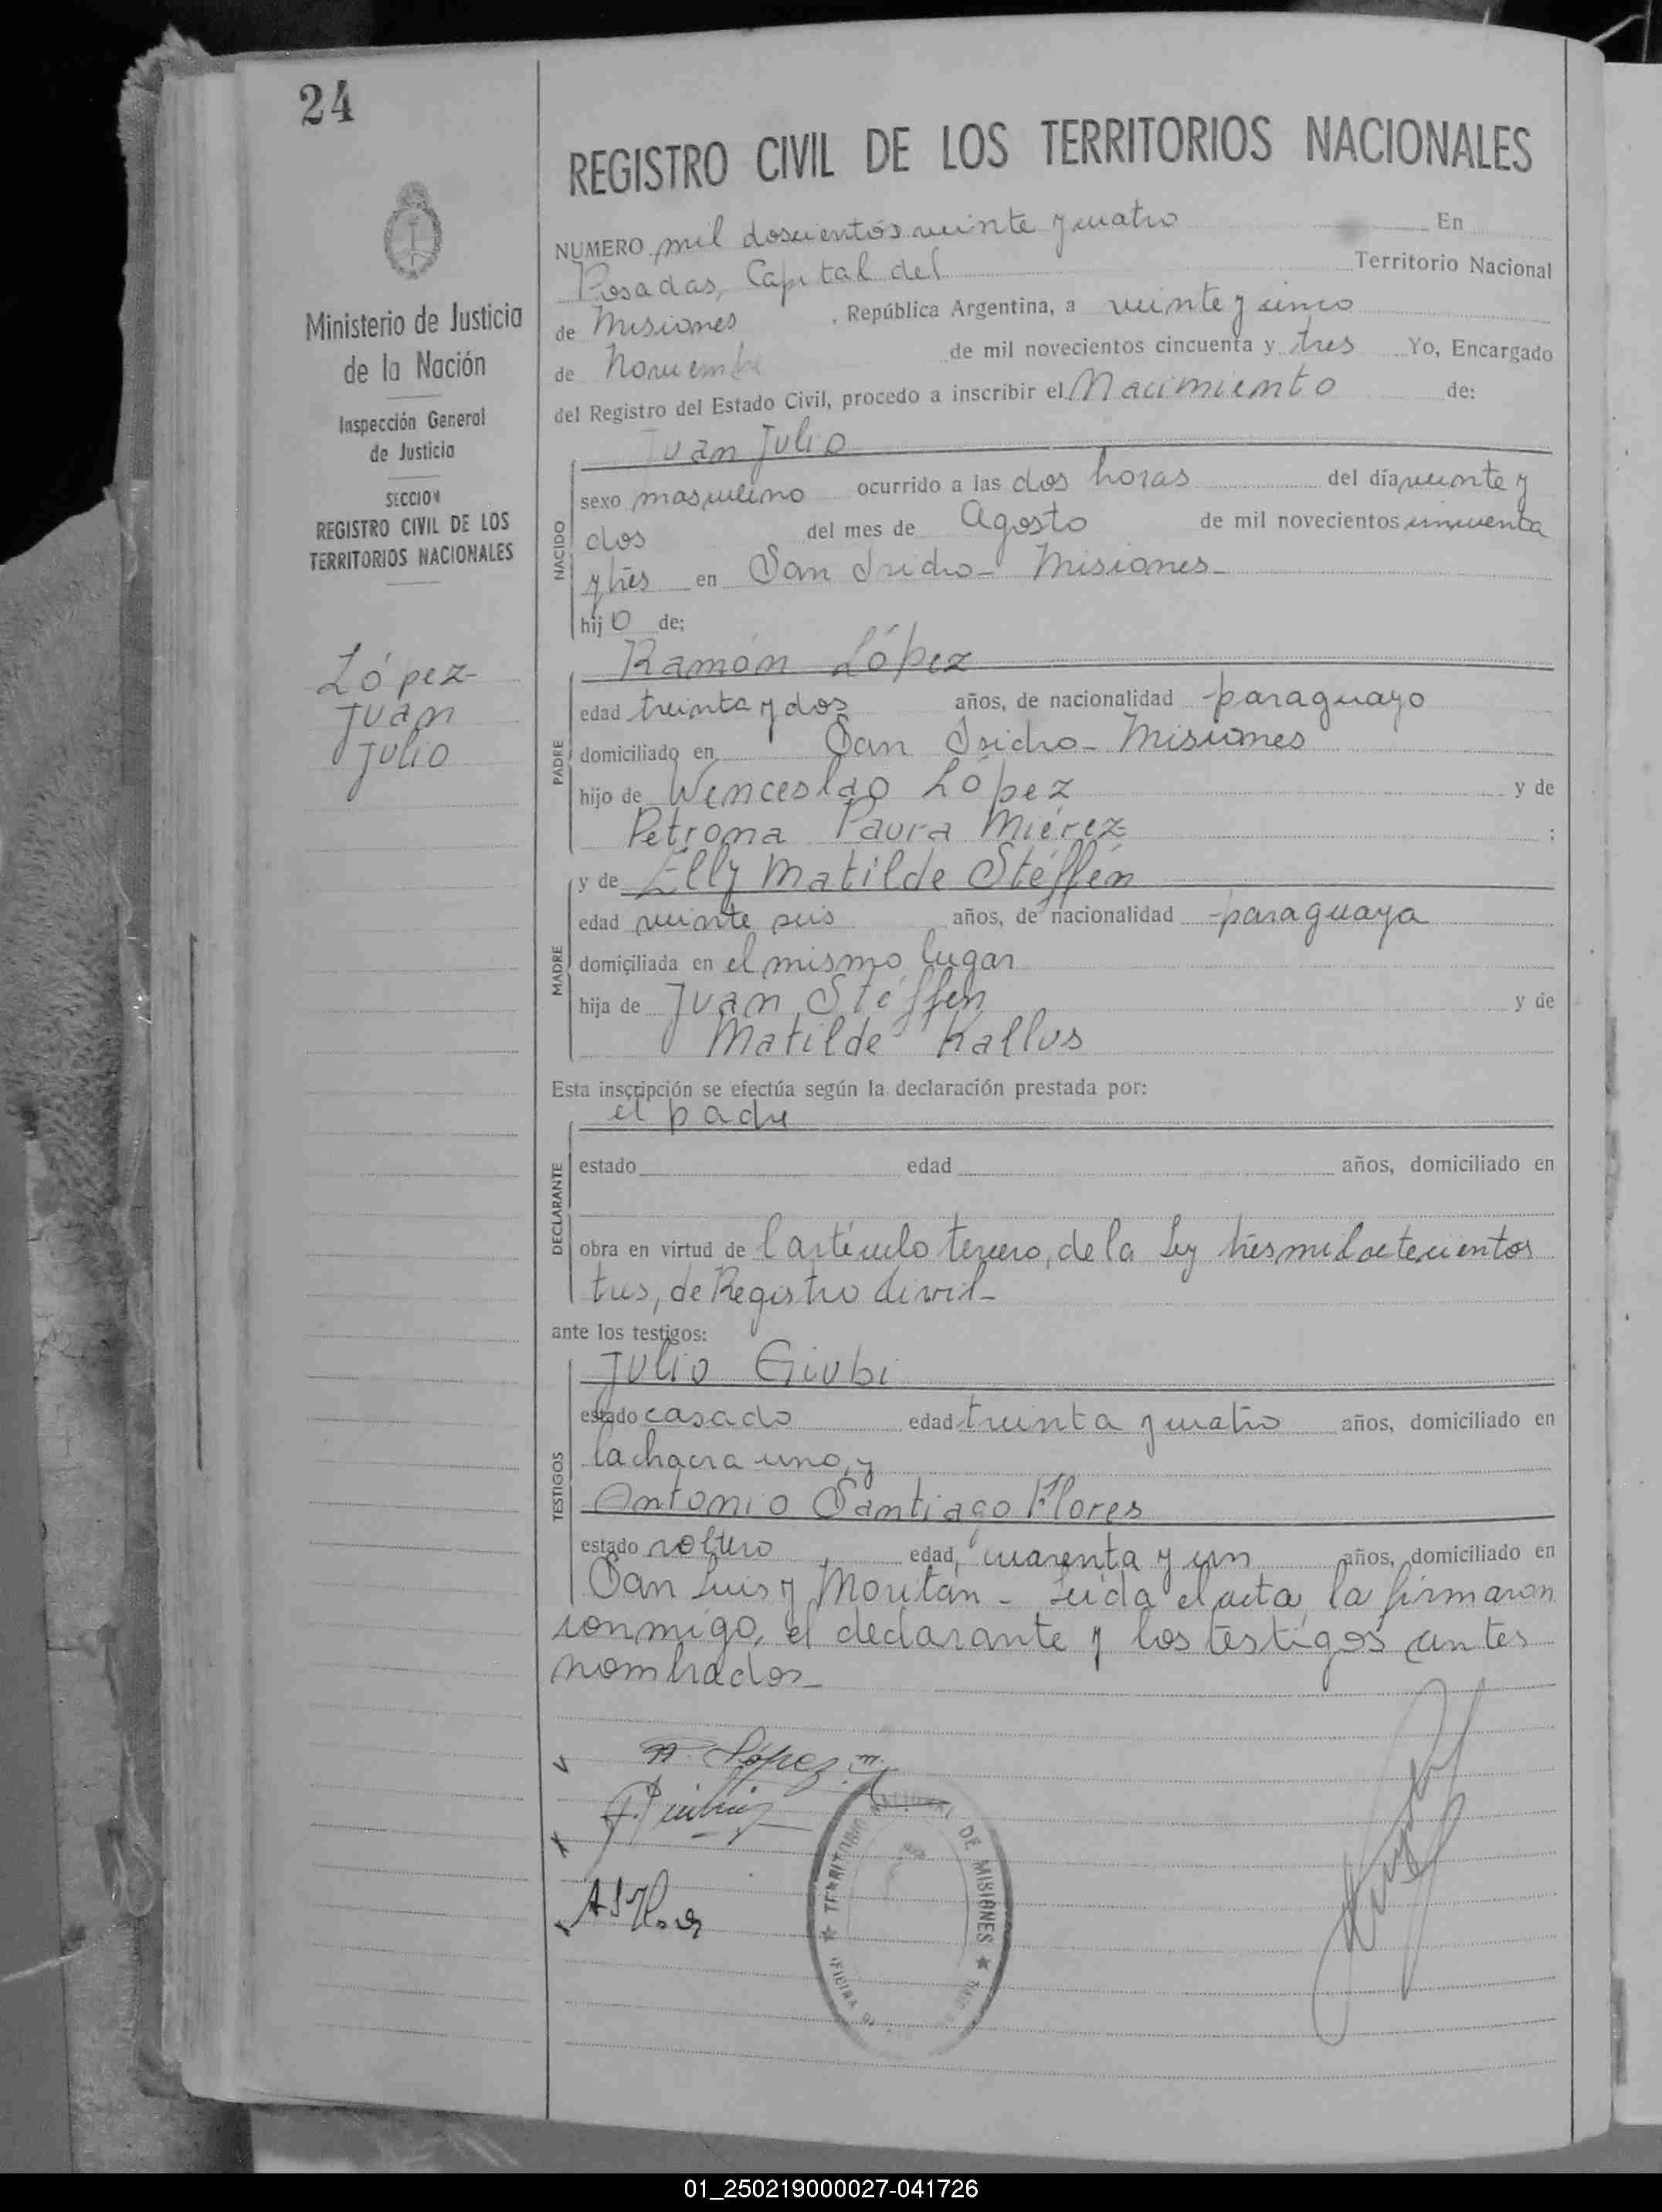 24
REGISTRO CIVIL DE LOS TERRITORIOS NACIONALES
NUMERO mil doscientos veinte y cuatro En
Posadas, Capital del Territorio Nacional
de Misiones, República Argentina, a veinte y cinco
de Noviembre de mil novecientos cincuenta y tres Yo, Encargado
del Registro del Estado Civil, procedo a inscribir el Nacimiento de:
Juan Julio
NACIDO
sexo masculino ocurrido a las dos horas del día veinte y
dos del mes de Agosto de mil novecientos cincuenta
y tres en San Isidro - Misiones -
hijo de;
Ramón López
PADRE
edad treinta y dos años, de nacionalidad paraguayo
domiciliado en San Isidro - Misiones
hijo de Wenceslao López y de
Petrona Paura Miérez :
MADRE
y de Elly Matilde Stéffén
edad veinte seis años, de nacionalidad paraguaya
domiciliada en el mismo lugar
hija de Juan Stéffen y de
Matilde Kallus
Esta inscripción se efectúa según la declaración prestada por:
el padre
DECLARANTE
estado edad años, domiciliado en
obra en virtud de l artículo tercero, de la Ley tres mil setecientos
tres, de Registro Civil -
ante los testigos:
TESTIGOS
Julio Giubi
estado casado edad treinta y cuatro años, domiciliado en
la chacra uno, y
Antonio Santiago Flores
estado soltero, edad, cuarenta y un años, domiciliado en
San Luis y Moritán - Leída el acta, la firmaron
conmigo, el declarante y los testigos antes
nombrados -
R. López M.
A S Flores
TERRITORIO NACIONAL DE MISIONES
Ministerio de Justicia
de la Nación
Inspección General
de Justicia
SECCION
REGISTRO CIVIL DE LOS
TERRITORIOS NACIONALES
López -
Juan
Julio
01_250219000027-041726